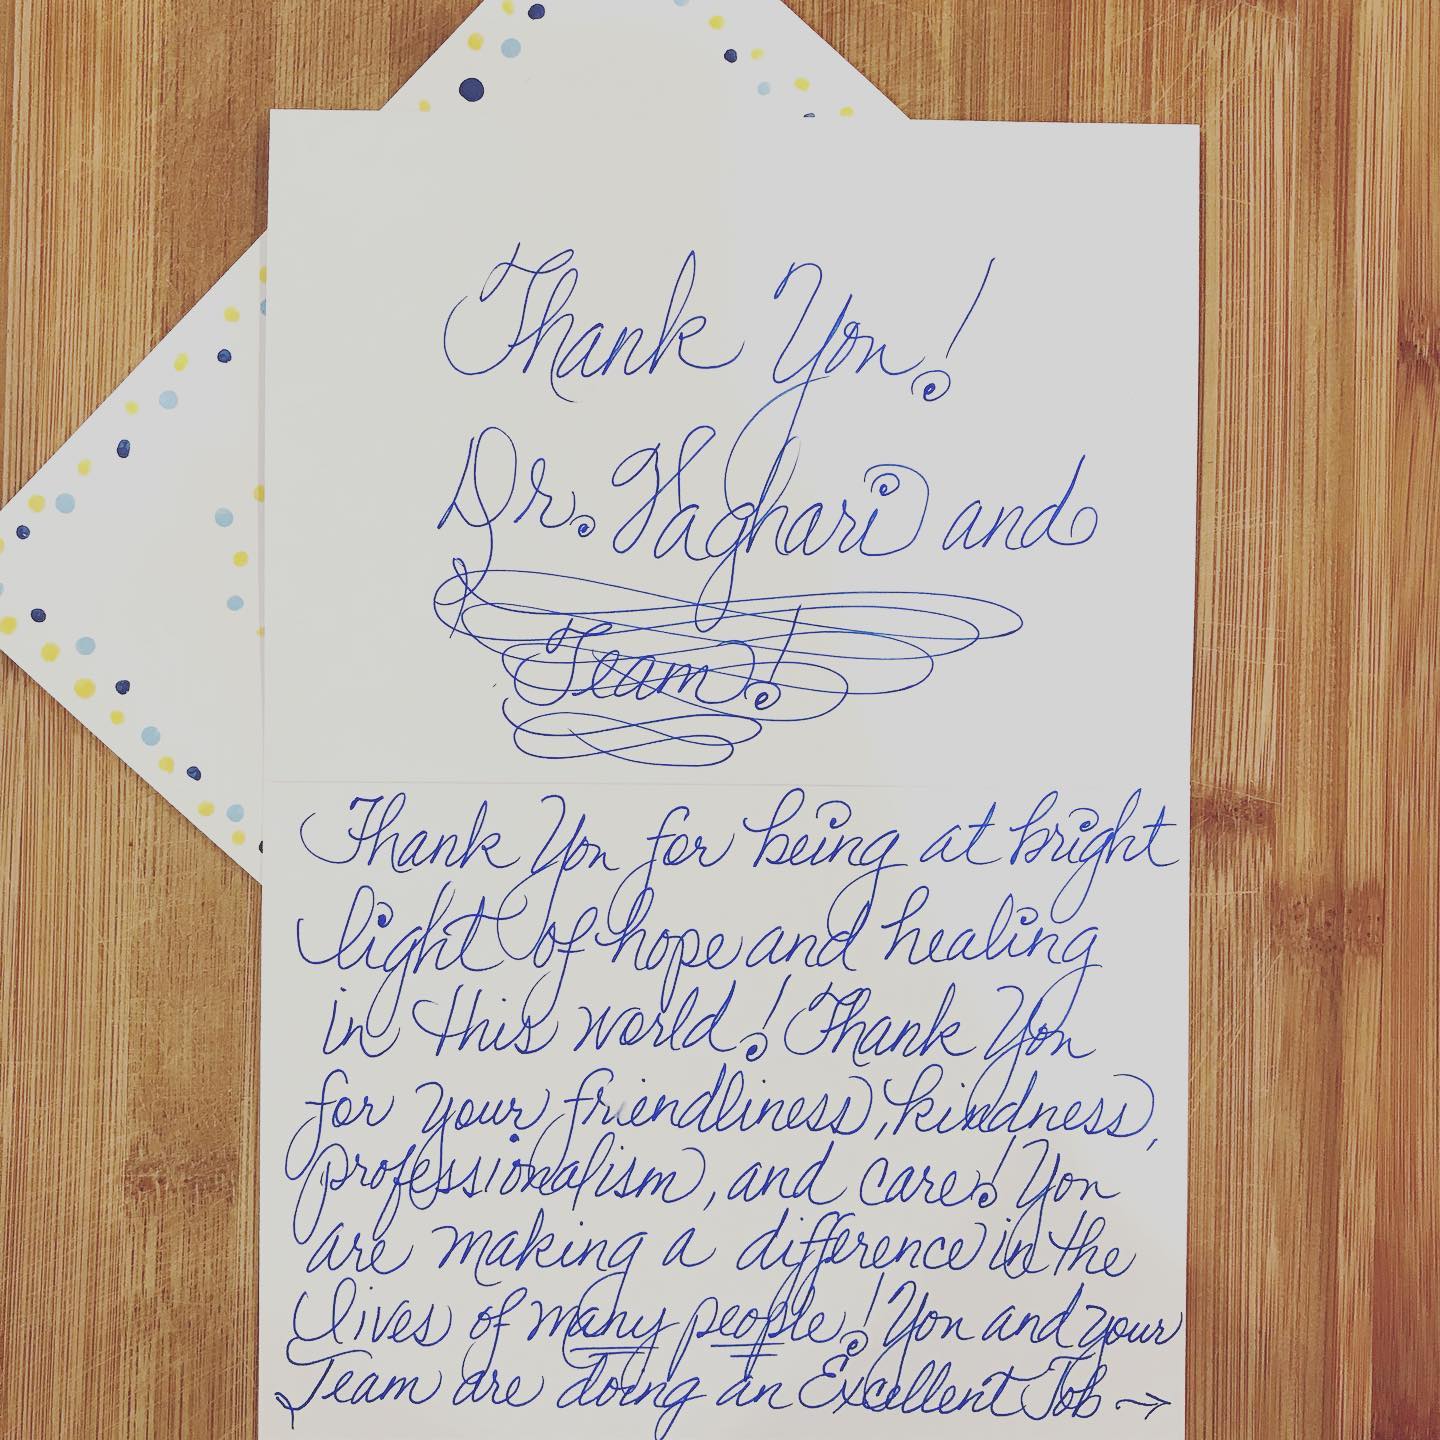 Thank You!
Dr. Haghari and
Team!
Thank You for being at bright
light of hope and healing
in this world! Thank You
for your friendliness, kindness,
professionalism, and care! You
are making a difference in the
lives of many people! You and your
Team are doing an Excellent Job →